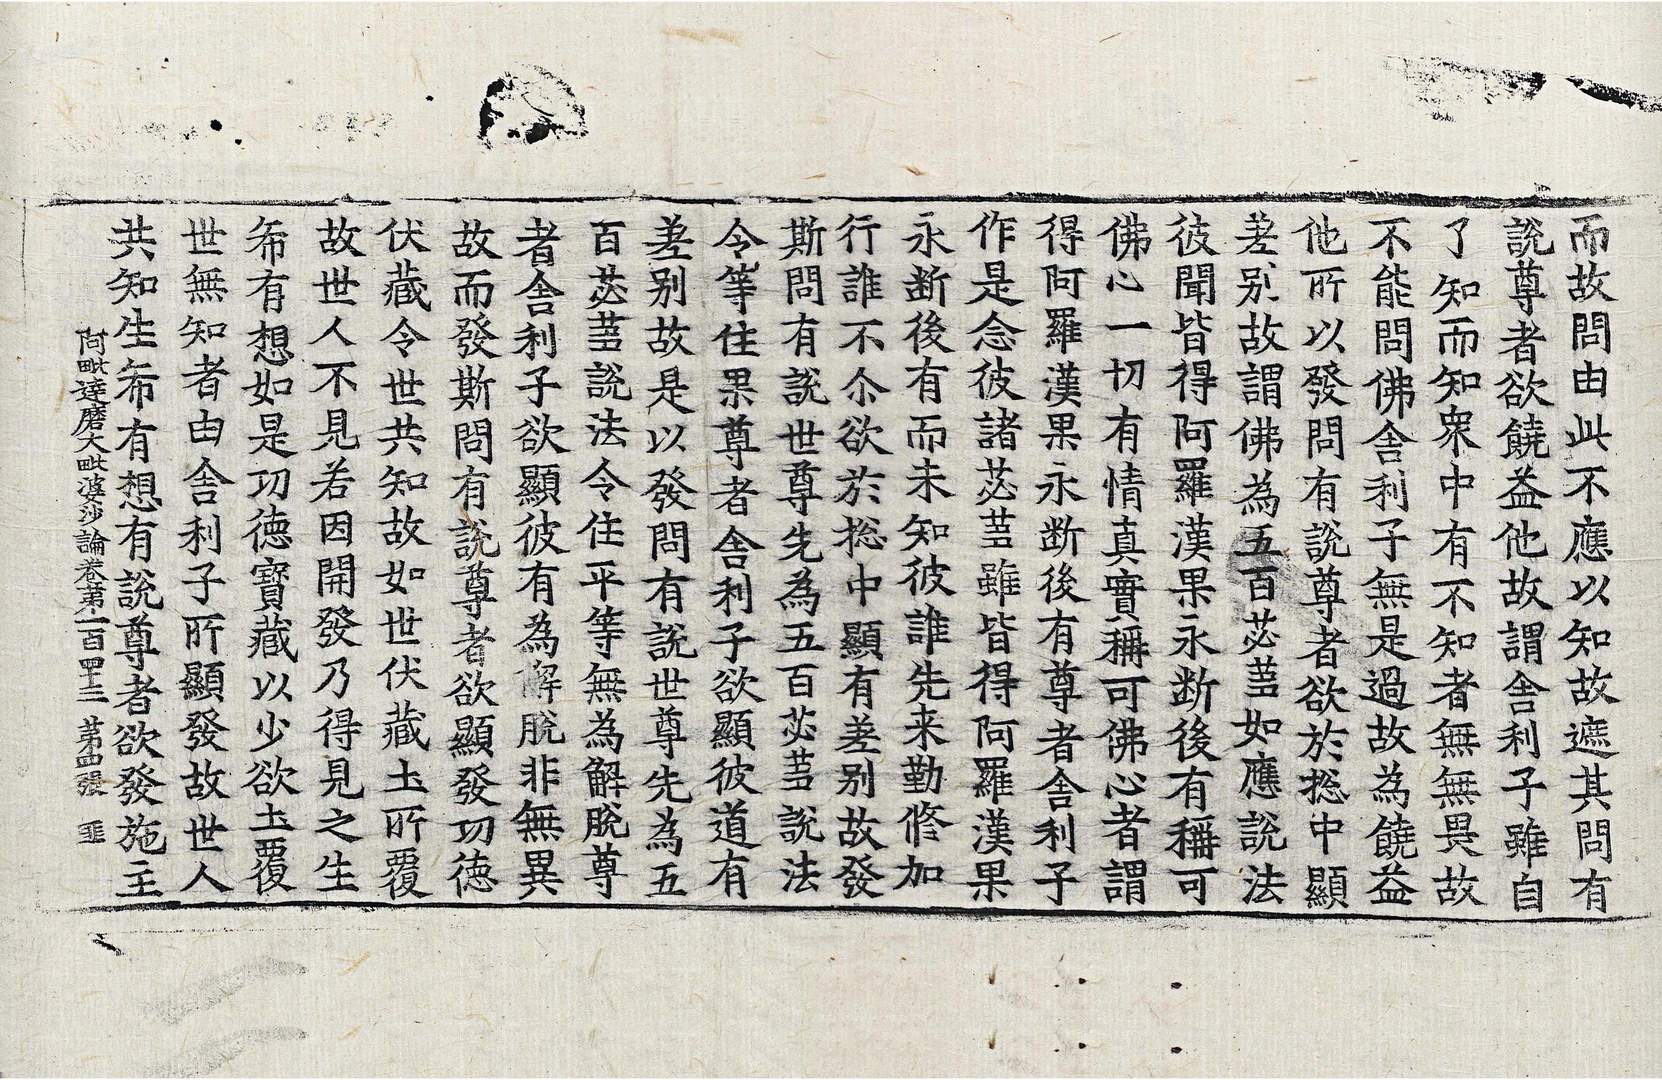 而故問由此不應以知故遮其問有
說尊者欲饒益他故謂舍利子雖自
了知而知衆中有不知者無無畏故
不能問佛舍利子無是過故為饒益
他所以發問有說尊者欲於揔中顯
差别故謂佛為五百苾蒭如應說法
彼聞皆得阿羅漢果永断後有稱可
佛心一切有情真實稱可佛心者謂
得阿羅漢果永断後有尊者舍利子
作是念彼諸苾蒭雖皆得阿羅漢果
永断後有而未知彼誰先来勤修加
行誰不尒欲於揔中顯有差别故發
斯問有說世尊先為五百苾蒭說法
令等住果尊者舍利子欲顯彼道有
差别故是以發問有說世尊先為五
百苾蒭說法令住平等無為解脫尊
者舍利子欲顯彼有為解脫非無異
故而發斯問有說尊者欲顯發功德
伏藏令世共知故如世伏藏土所覆
故世人不見若因開發乃得見之生
希有想如是功德寶藏以少欲土覆
世無知者由舍利子所顯發故世人
共知生希有想有說尊者欲發施主
阿毗達磨大毗婆沙論卷第一百四十三 第四張 匪